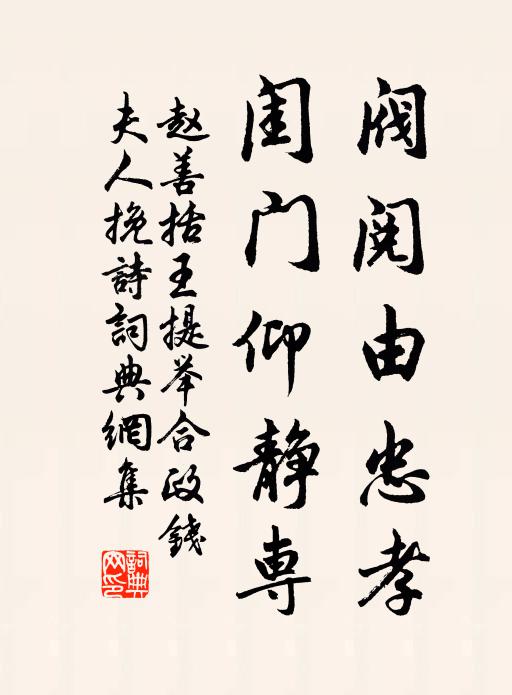 阀阅由忠孝
闺门仰静専
赵善括王提举合政錢
夫人挽詩詞典網集
詞典网印